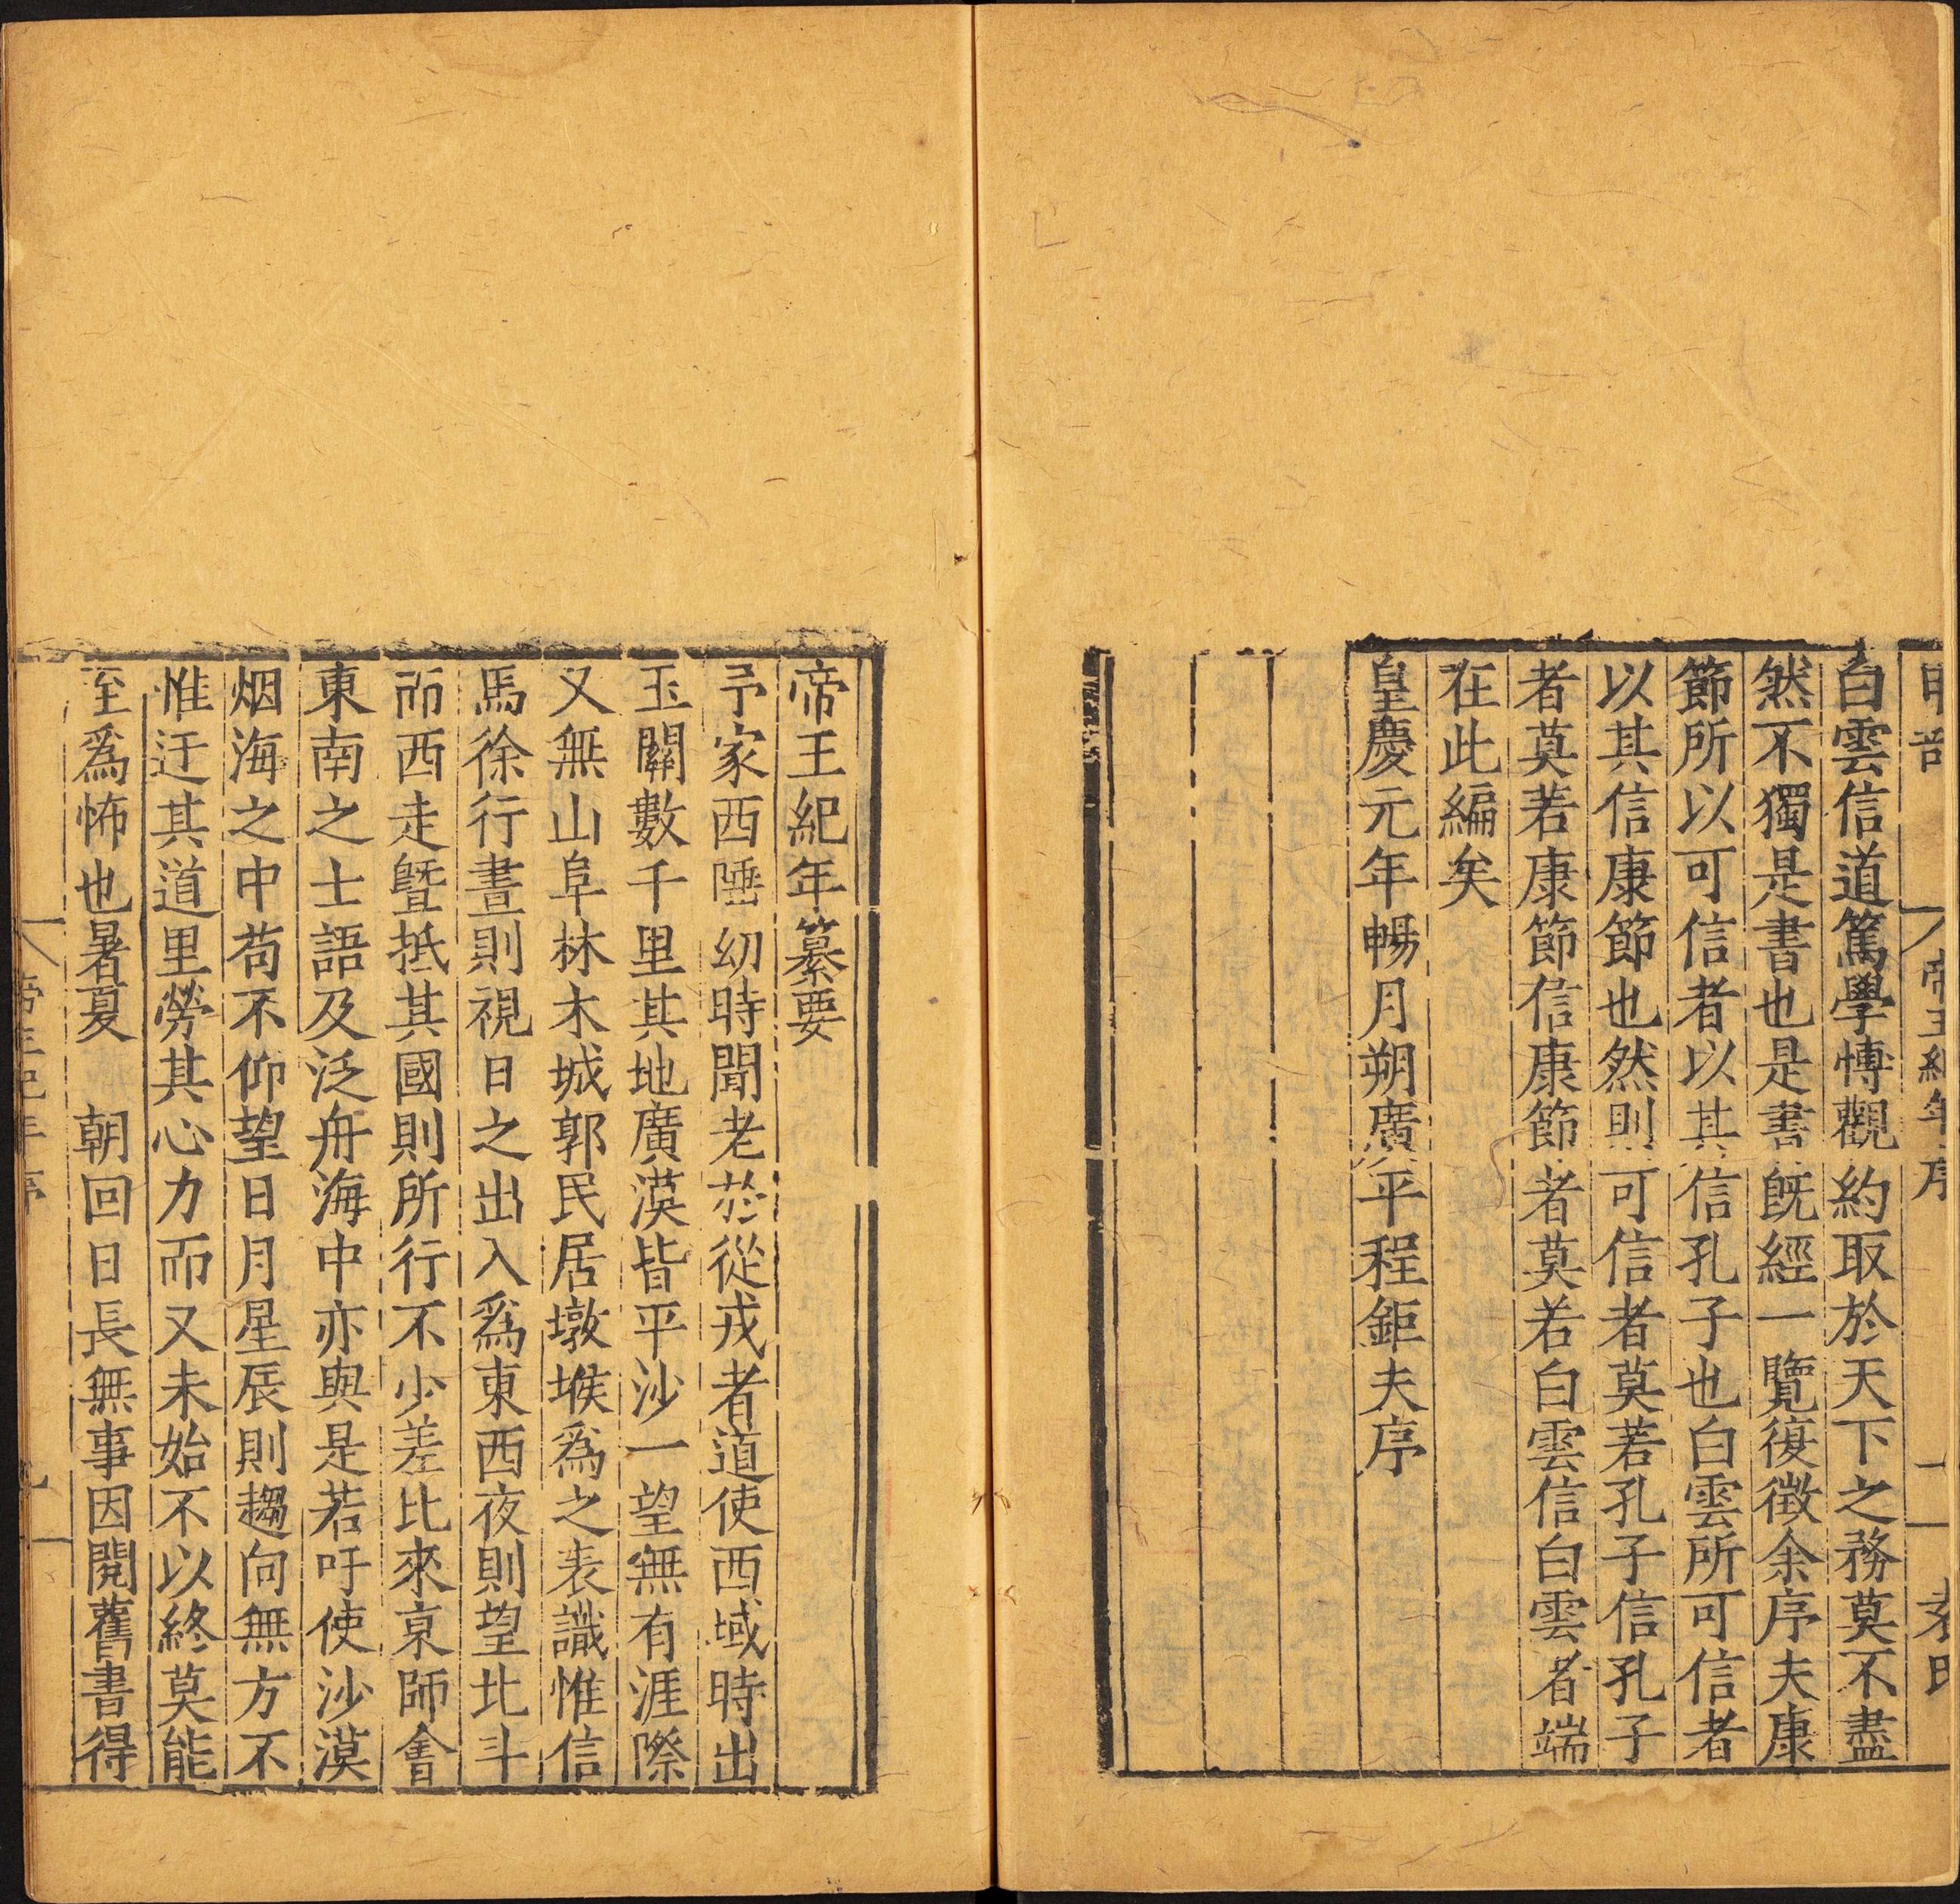 帝王紀年序
白雲信道篤學愽觀約取於天下之務莫不盡
然不獨是書也是書旣經一覽復徵余序夫康
節所以可信者以其信孔子也白雲所可信者
以其信康節也然則可信者莫若孔子信孔子
者莫若康節信康節者莫若白雲信白雲者端
在此編矣
皇慶元年暢月朔廣平程鉅夫序
帝王紀年纂要
予家西陲幼時聞老於從戎者道使西域時出
玉關數千里其地廣漠皆平沙一望無有涯際
又無山阜林木城郭民居墩堠爲之表識惟信
馬徐行晝則視日之出入爲東西夜則望北斗
而西走曁抵其國則所行不少差比來京師會
東南之士語及泛舟海中亦與是若吁使沙漠
烟海之中苟不仰望日月星辰則趨向無方不
惟迂其道里勞其心力而又未始不以終莫能
至爲怖也暑夏　朝回日長無事因閱舊書得
帝王紀年序